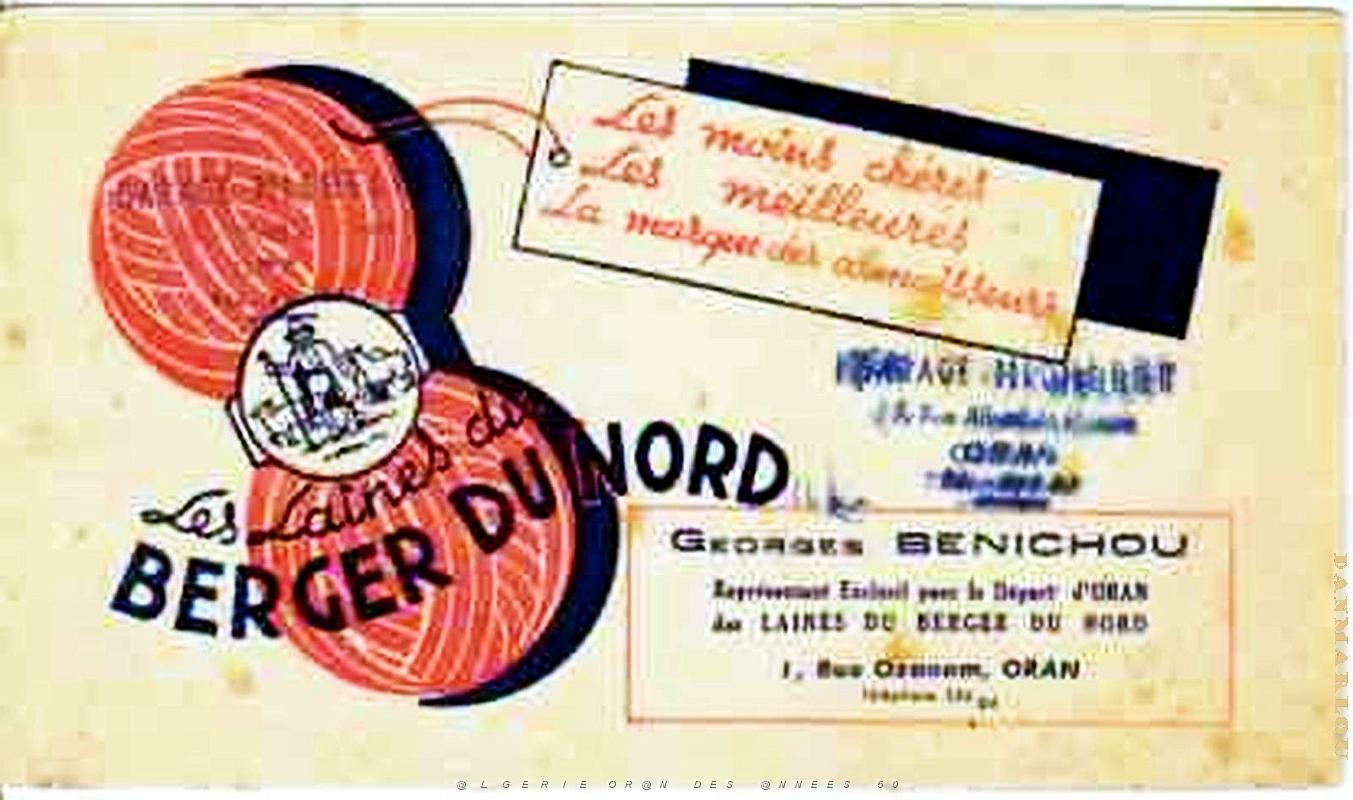 Les moins chéres
Les meilleures
La marque des connaisseurs
Les Laines du
BERGER DU NORD
ORAN
GEORGES BENICHOU
Représentant Exclusif pour le Départ' d'ORAN
des LAINES DU BERGER DU NORD
1, Rue Ozanam, ORAN
Téléphone
DAIMARLOU
@LGERIE OR@N DES @NNEES 50